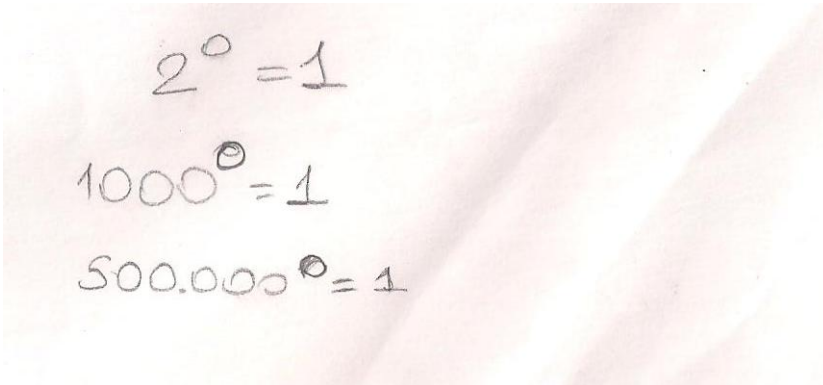 2⁰ = 1
1000⁰ = 1
500.000⁰ = 1